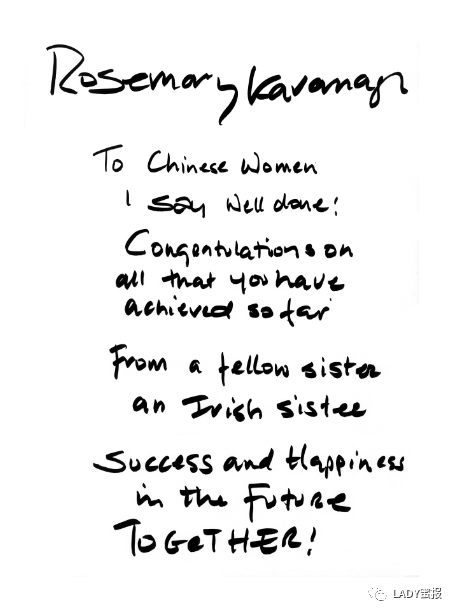 Rosemary Kavanagh
To Chinese Women
I say Well done!
Congentulations on
all that you have
achieved so far
From a fellow sister
an Irish sister
Success and Happiness
in the Future
TOGETHER!
LADY蜜报